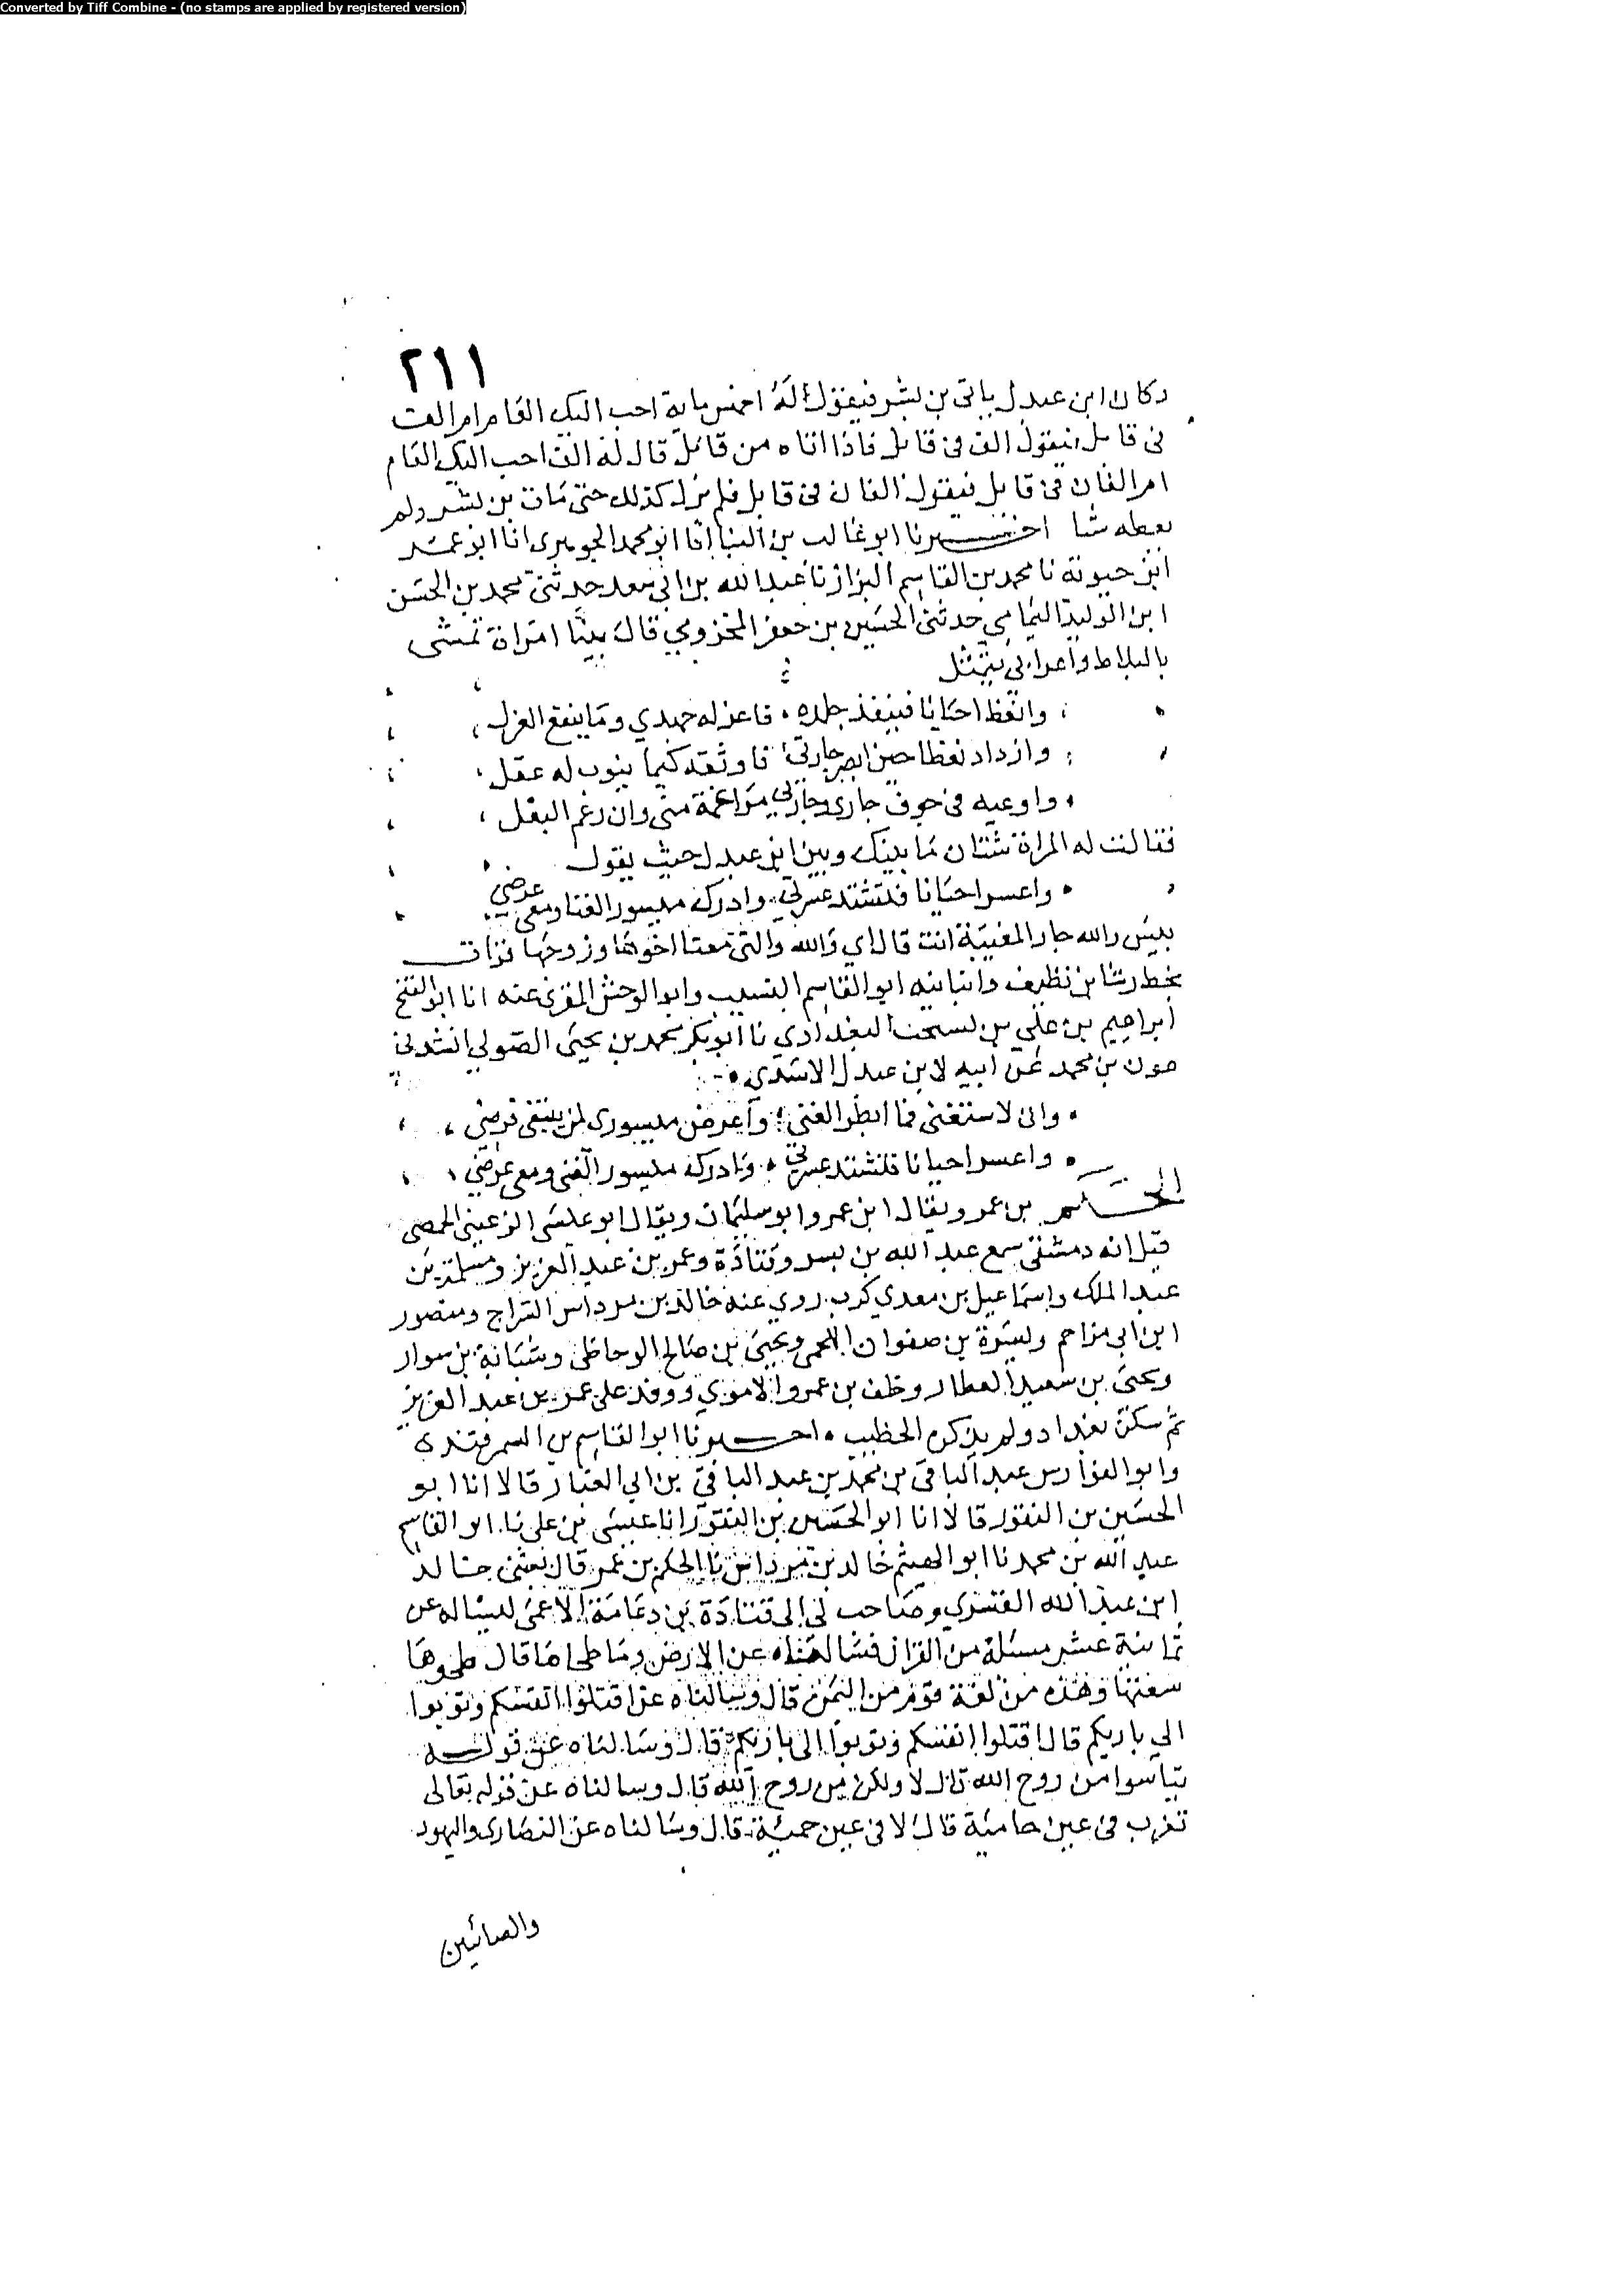 Converted by Tiff Combine - (no stamps are applied by registered version)
٢١١
وكان ابن عبدل ياتي بن بشر فيقول له اخمس ماية احب اليك العام ام الف
في قابل فيقول الف في قابل فاذا اتاه من قابل قال له الف احب اليك العام
ام الفان في قابل فيقول الفان في قابل فلم يزل كذلك حتى مات بن بشر ولم
يعطه شيا اخبرنا ابو غالب بن البنا انا ابو محمد الجوهري انا ابو عمر
ابن حيوية نا محمد بن القاسم البزاز نا عبد الله بن ابي سعد حدثني محمد بن الحسن
ابن الوليد اليمامي حدثني الحسين بن جعفر المخزومي قال بينا امراة تمشي
بالبلاط واعرابي يتمثل
وانغظ احيانا فينفذ جلده فاعزله جهدي وما ينفع العزل
وازداد نغظا حين ابصر جارتي فاوثقه كيما يثوب له عقل
واوعيه في جوف جاري وجارتي مراغمة مني وان رغم البعل
فقالت له المراة شتان ما بينك وبين ابن عبدل حيث يقول
واعسر احيانا فتشتد عسرتي وادرك ميسور الغنا ومعي عرضي
بيس والله جار المغيبة انت قال اي والله والتي معها اخوها وزوجها قرات
بخط رشا بن نظيف وانبانيه ابو القاسم النسيب وابو الوحش المقري عنه انا ابو الفتح
ابراهيم بن علي بن سيبخت البغدادي نا ابو بكر محمد بن يحيى الصولي انشدني
عون بن محمد عن ابيه لابن عبدل الاسدي
واني لاستغني فما ابطر الغنى واعرض ميسوري لمن يبتغي قرضي
واعسر احيانا فتشتد عسرتي وادرك ميسور الغنى ومعي عرضي
الحكم بن عمر ويقال ابن عمرو ابو سليمان ويقال ابو عيسى الرعيني الحمصي
قيل انه دمشقي سمع عبد الله بن بسر وقتادة وعمر بن عبد العزيز ومسلمة بن
عبد الملك واسماعيل بن معدي كرب روي عنه خالد بن مرداس السراج ومنصور
ابن ابي مزاحم ويسرة بن صفوان اللخمي ويحيى بن صالح الوحاظي وشبابة بن سوار
ويحيى بن سعيد العطار وخلف بن عمرو الاموي ووفد على عمر بن عبد العزيز
ثم سكن بغداد ولم يذكره الخطيب اخبرنا ابو القاسم بن السمرقندي
وابو الفوارس عبد الباقي بن محمد بن عبد الباقي بن ابي الغبار قالا انا ابو
الحسين بن النقور قالا انا ابو الحسين بن النقور انا عيسى بن علي نا ابو القاسم
عبد الله بن محمد نا ابو الهيثم خالد بن مرداس نا الحكم بن عمر قال بعثني خالد
ابن عبد الله القسري وصاحب لي الى قتادة بن دعامة الاعمى ليساله عن
ثمانية عشر مسئلة من القران فسالناه عن الارض وما طحاها قال طحوها
سعتها وهذه من لغة قوم من اليمن قال وسالناه عن اقتلوا انفسكم وتوبوا
الي باريكم قال اقتلوا انفسكم وتوبوا الى باريكم قال وسالناه عن قوله
تياسوا من روح الله قال لا ولكن من روح الله قال وسالناه عن قوله تعالى
تغرب في عين حامية قال لا في عين حمئة قال وسالناه عن النصارى واليهود
والصائبين